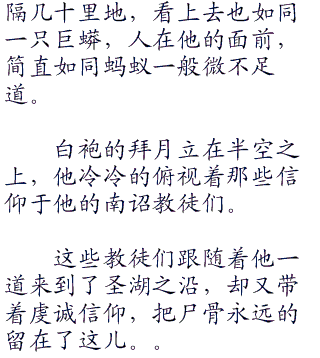 隔几十里地，看上去也如同
一只巨蟒，人在他的面前，
简直如同蚂蚁一般微不足
道。
白袍的拜月立在半空之
上，他冷冷的俯视着那些信
仰于他的南诏教徒们。
这些教徒们跟随着他一
道来到了圣湖之沿，却又带
着虔诚信仰，把尸骨永远的
留在了这儿。。